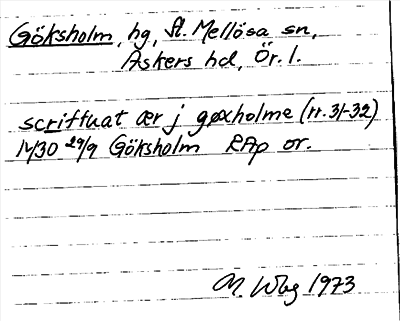 Göksholm, hg, St. Mellösa sn,
Askers hd, Ör. l.
scriffuat ær j gøxholme (rr. 31-32)
1430 29/9 Göksholm RAp or.
M. Wbg 1973